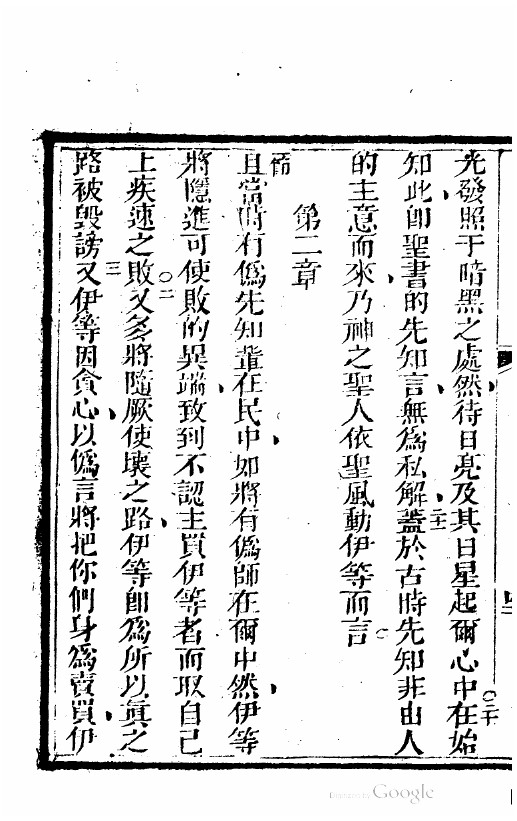 光發照于暗黑之處然待日亮及其日星起爾心中在始
二十
知此即聖書的先知言無為私解蓋於古時先知非由人
二十一
的主意而來乃神之聖人依聖風動伊等而言
第二章
且當時有偽先知輩在民中如將有偽師在爾中然伊等
將隱進可使敗的異端致到不認主買伊等者而取自己
二
上疾速之敗又多將隨厥使壞之路伊等即為所以真之
三
路被毀謗又伊等因貪心以偽言將把你們身為賣買伊
Digitized by Google